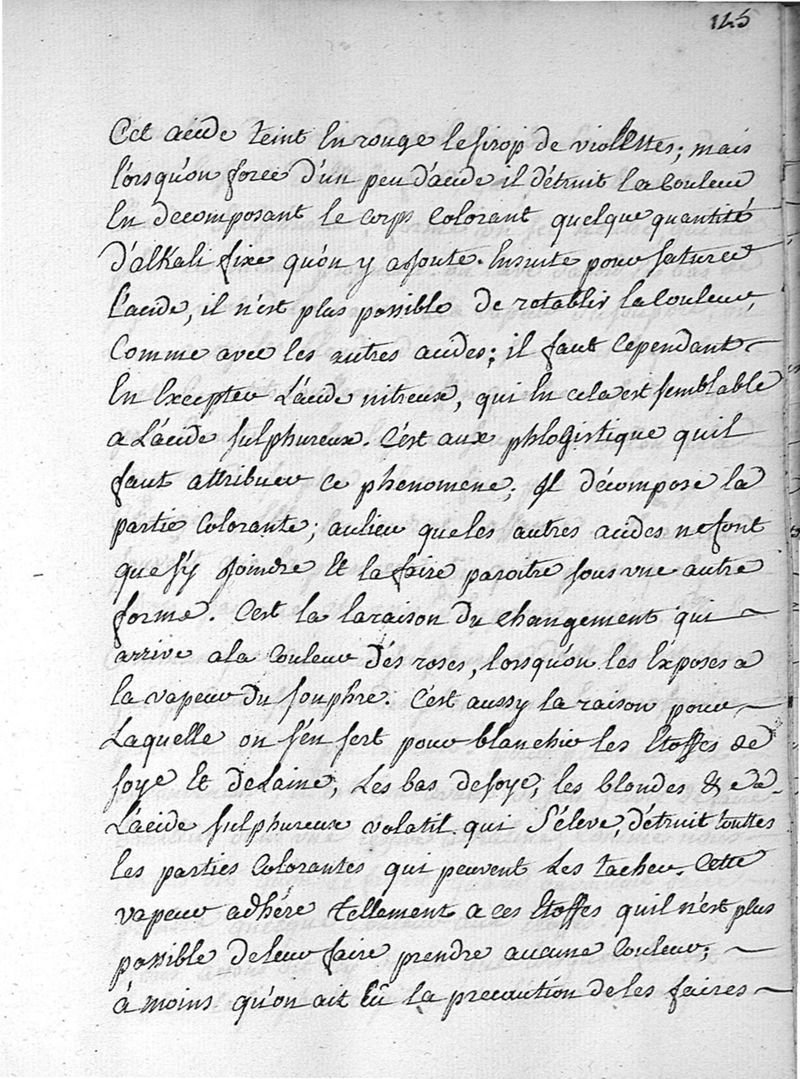 145
Cet acide teint En rouge le sirop de violettes; mais
lorsqu'on force d'un peu d'acide il détruit la Couleur
En decomposant le Corps Colorant quelque quantité
d'alkali fixe qu'on y ajoute. Ensuite pour saturer
L'acide, il n'est plus possible de rétablir la Couleur,
Comme avec les autres acides; il faut Cependant
En Excepter L'acide nitreux, qui En cela est semblable
a L'acide sulphureux. C'est aux phlogistique quil
faut attribuer ce phenomene; Il décompose la
partie Colorante; aulieu que les autres acides ne font
que s'y joindre Et la faire paroitre sous une autre
forme. C'est la laraison du Changement qui
arrive ala Couleur dés roses, lorsqu'on les Exposes a
la vapeur du souphre. C'est aussy la raison pour
Laquelle on s'en sert pour blanchir les Etoffes de
soye Et de Laine, Les bas de soye, les blondes & ca.
L'acide sulphureux volatil qui S'éleve, détruit touttes
les parties Colorantes qui peuvent les tacher. Cette
vapeur adhére tellement a ces Etoffes quil n'est plus
possible de leur faire prendre aucune Couleur;
à moins qu'on ait Eû la precaution de les faires